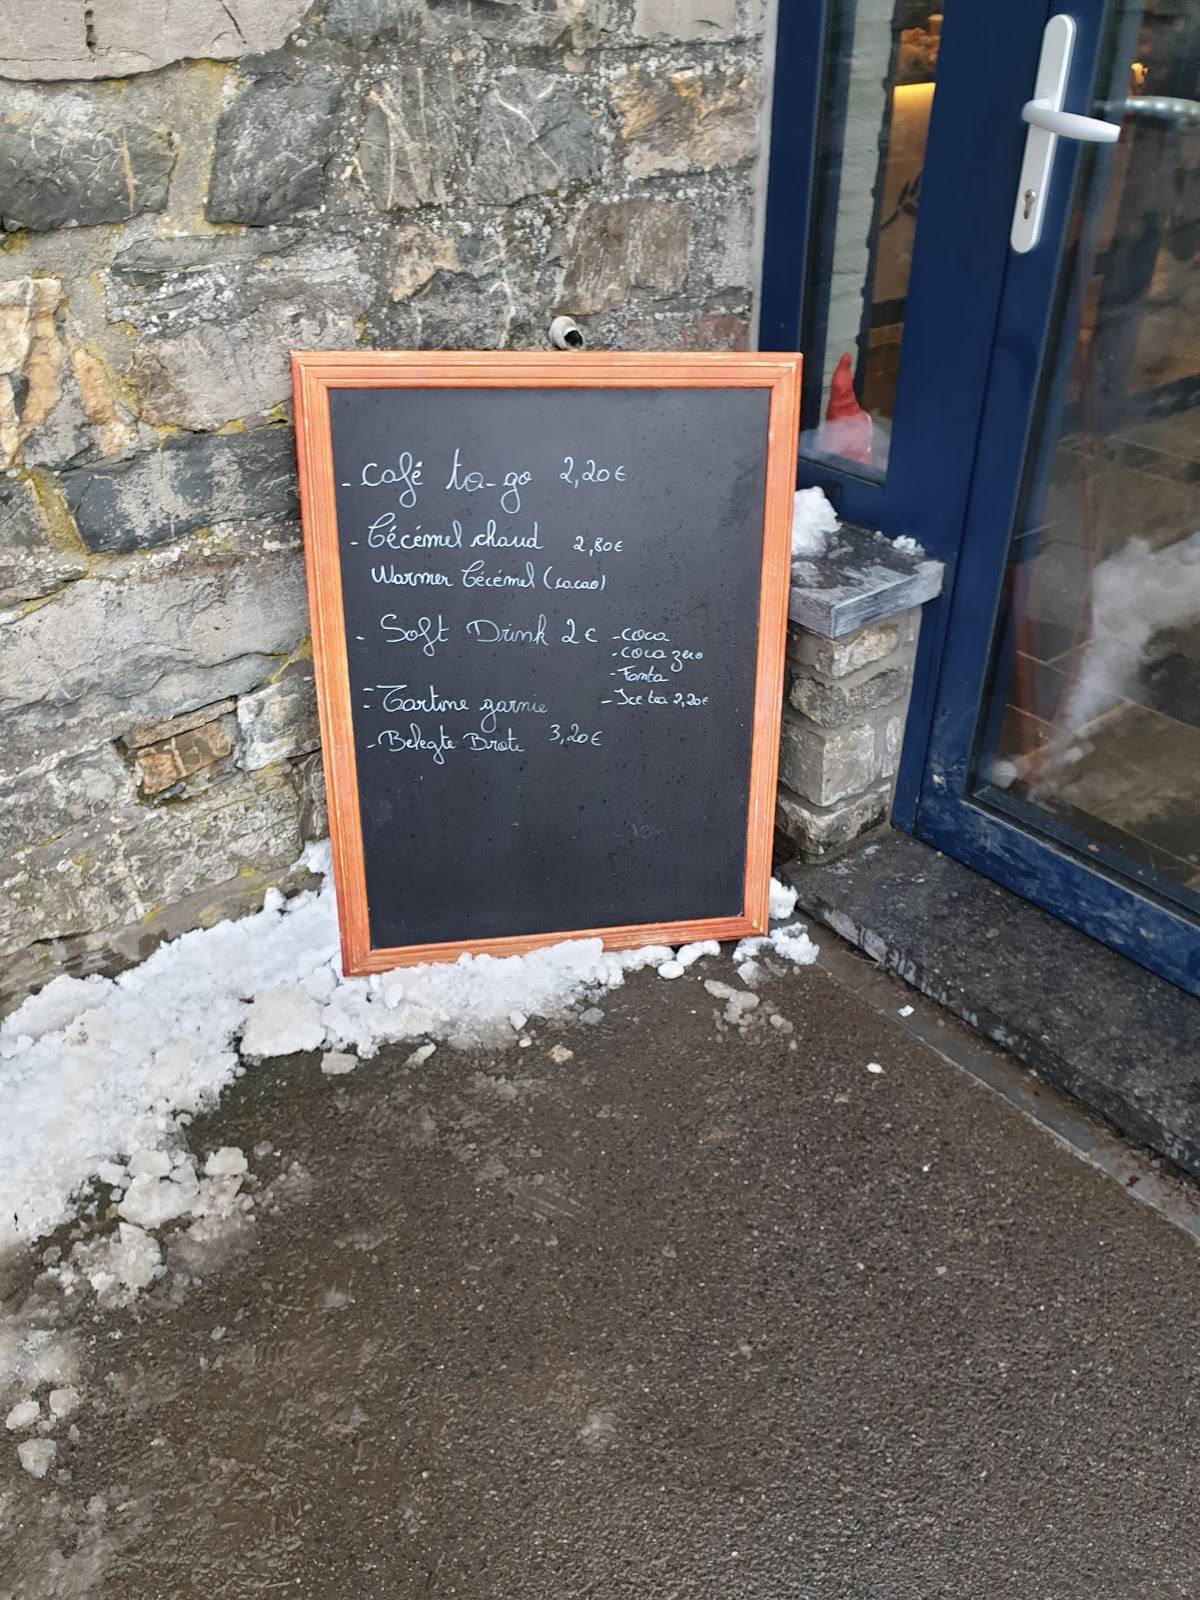 - Café to-go 2,20€
- Cécémel chaud 2,80€
Warmer Cécémel (cacao)
- Soft Drink 2€ - coca
- coca zero
- Fanta
- Ice tea 2,20€
- Tartine garnie
- Belegte Brote 3,20€